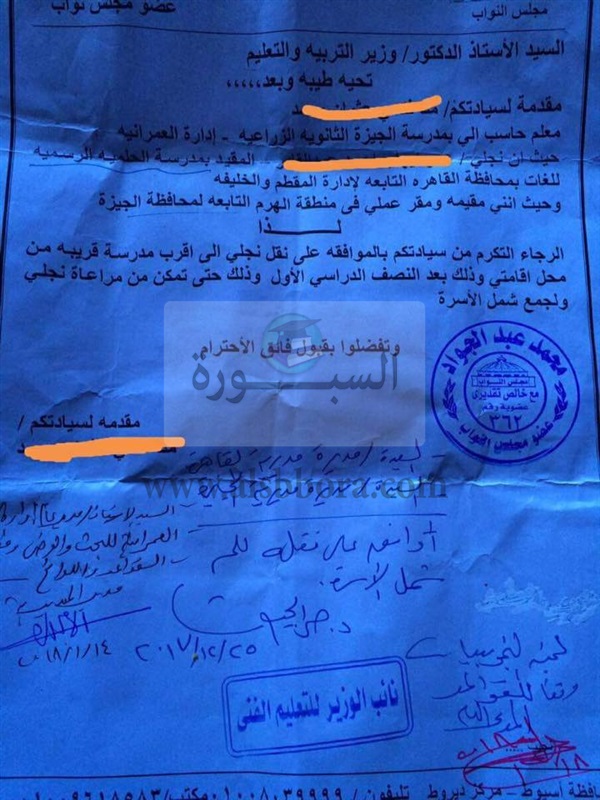 مجلس النواب
عضو مجلس نواب
السيد الأستاذ الدكتور/ وزير التربيه والتعليم
تحيه طيبه وبعد،،،،،
مقدمة لسيادتكم/
معلم حاسب الي بمدرسة الجيزة الثانويه الزراعيه - إدارة العمرانيه
حيث ان نجلي/ - المقيد بمدرسة الحلميه الرسميه
للغات بمحافظة القاهره التابعه لإدارة المقطم والخليفه
وحيث انني مقيمه ومقر عملي فى منطقة الهرم التابعه لمحافظة الجيزة
لـــــذا
الرجاء التكرم من سيادتكم بالموافقه على نقل نجلي الى اقرب مدرسة قريبه من
محل اقامتي وذلك بعد النصف الدراسي الأول وذلك حتى تمكن من مراعاة نجلي
ولجمع شمل الأسرة
وتفضلوا بقبول فائق الأحترام
السبورة
محمد عبد الجواد
مجلس النواب
مع خالص تقديرى
عضوية رقم
٣٦٢
عضو مجلس النواب
مقدمه لسيادتكم /
السيدة / مديرة مديرية القاهرة
أوافق على نقله للم
شمل الأسرة.
٢٠١٧/١٢/٢٥
العمرانية للبحث والعرض
القواعد واللوائح
١٨/١/١٤
نائب الوزير للتعليم الفنى
وفقا للقواعد
محافظة أسيوط - مركز ديروط - تليفون /